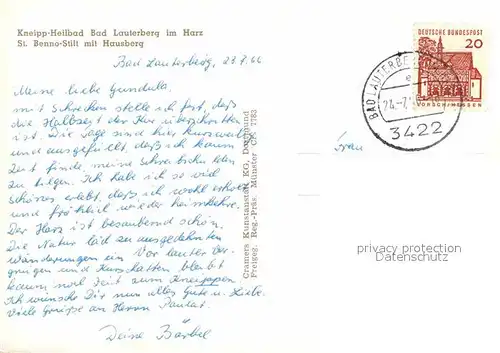 Kneipp-Heilbad Bad Lauterberg im Harz
St. Benno-Stift mit Hausberg
Bad Lauterberg, 23.7.66
Meine liebe Gundula.
mit Schrecken stelle ich fest, daß
die Halbzeit der Kur überschritten
ist. Die Tage sind hier kurzweilig
und ausgefüllt, daß ich kaum
Zeit finde, meine Schreibschulden
zu tilgen. Ich habe ich so viel
schönes erlebt, daß ich wohl erholt
und fröhlich wieder heimkehre.
Der Harz ist bezaubernd schön.
Die Natur läd zu ausgedehnten
Wanderungen ein. Vor lauter Ver-
gnügen und Kurschatten bleibt
kaum noch Zeit zum Kneippen
Ich wünsche Dir nun alles Gute u. Liebe.
Viele Grüße an Herrn
Deine Bärbel
Cramers Kunstanstalt KG, Dortmund
Freigeg. Reg.-Präs. Münster CK 7783
DEUTSCHE BUNDESPOST
20
LORSCH/HESSEN
BAD LAUTERBE
e
24.-7.
3422
Frau
privacy protection
AnsichtskartenVersand.com